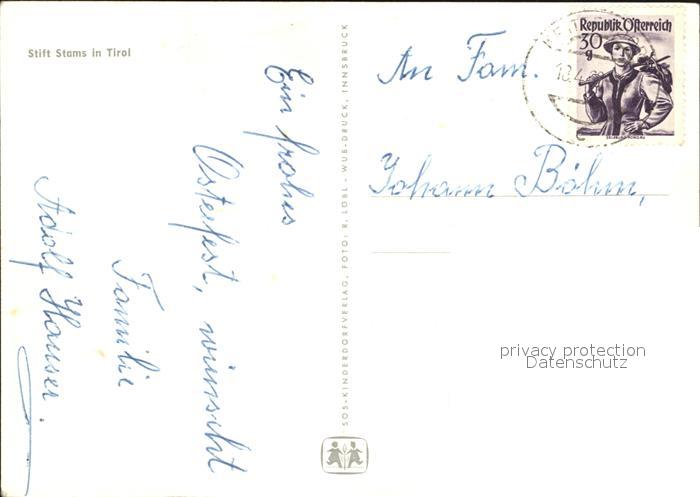 Stift Stams in Tirol
Ein frohes
Osterfest, wünscht
Familie
Adolf Hauser.
SOS-KINDERDORFVERLAG, FOTO: R. LÖBL - WUB-DRUCK, INNSBRUCK
An Fam.
Johann Böhm,
Republik Österreich
30
g
10.4.
privacy protection
Datenschutz